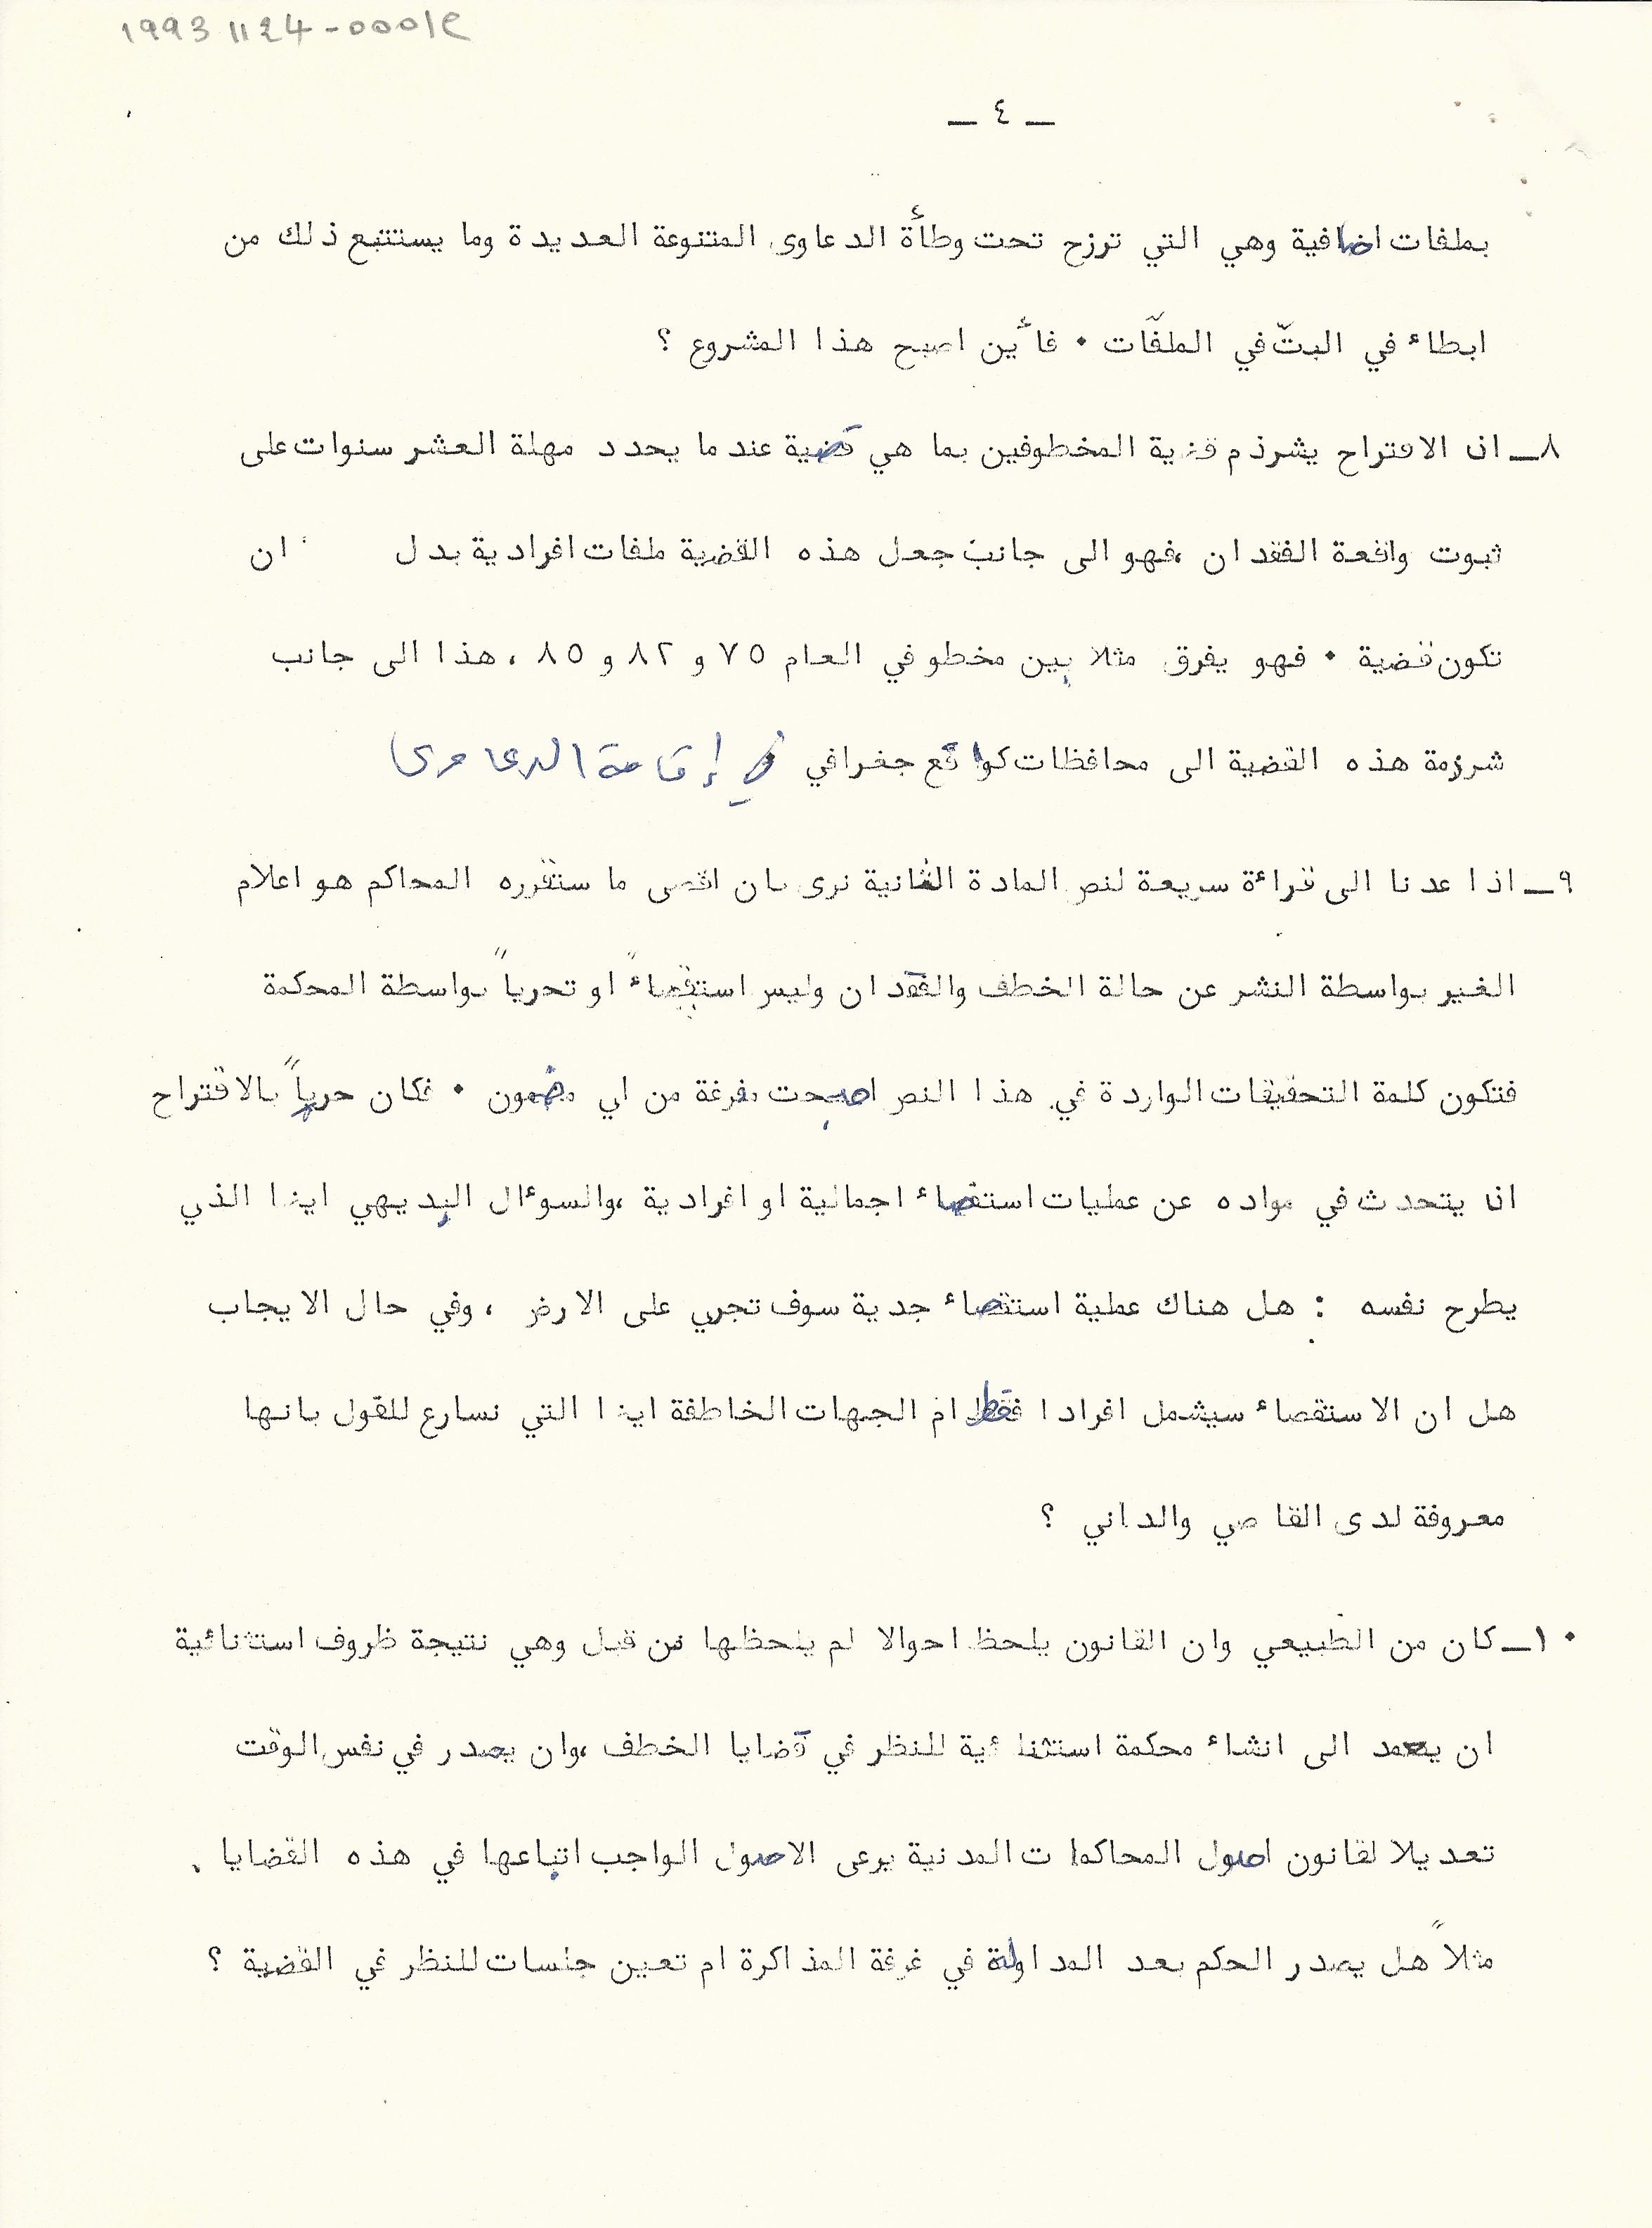 19931124-0001e
_ ٤ _
بملفات اضافية وهي التي ترزح تحت وطأة الدعاوى المتنوعة العديدة وما يستتبع ذلك من
ابطاء في البتّ في الملفّات ٠ فأين اصبح هذا المشروع ؟
٨_ ان الاقتراح يشرذم قضية المخطوفين بما هي قضية عندما يحدد مهلة العشر سنوات على
ثبوت واقعة الفقدان ،فهو الى جانب جعل هذه القضية ملفات افرادية بدل ان
تكون قضية ٠ فهو يفرق مثلا بين مخطوفي العام ٧٥ و ٨٢ و ٨٥ ، هذا الى جانب
شرزمة هذه القضية الى محافظات كواقع جغرافي في إقامة الدعاوى
٩_ اذا عدنا الى قراءة سريعة لنص المادة الثانية نرى بان اقصى ما ستقرره المحاكم هو اعلام
الغير بواسطة النشر عن حالة الخطف والفقدان وليس استقصاءً او تحرياً بواسطة المحكمة
فتكون كلمة التحقيقات الواردة في هذا النص اصبحت مفرغة من اي مضمون ٠ فكان حرياً بالاقتراح
ان يتحدث في مواده عن عمليات استقصاء اجمالية او افرادية ،والسوءال البديهي ايضا الذي
يطرح نفسه : هل هناك عملية استقصاء جدية سوف تجري على الارض ، وفي حال الايجاب
هل ان الاستقصاء سيشمل افرادا فقط ام الجهات الخاطفة ايضا التي نسارع للقول بانها
معروفة لدى القاصي والداني ؟
١٠_ كان من الطبيعي وان القانون يلحظ احوالا لم يلحظها من قبل وهي نتيجة ظروف استثنائية
ان يعمد الى انشاء محكمة استثنائية للنظر في قضايا الخطف ،وان يصدر في نفس الوقت
تعديلا لقانون اصول المحاكمات المدنية يرعى الاصول الواجب اتباعها في هذه القضايا .
مثلاً هل يصدر الحكم بعد المداولة في غرفة المذاكرة ام تعين جلسات للنظر في القضية ؟